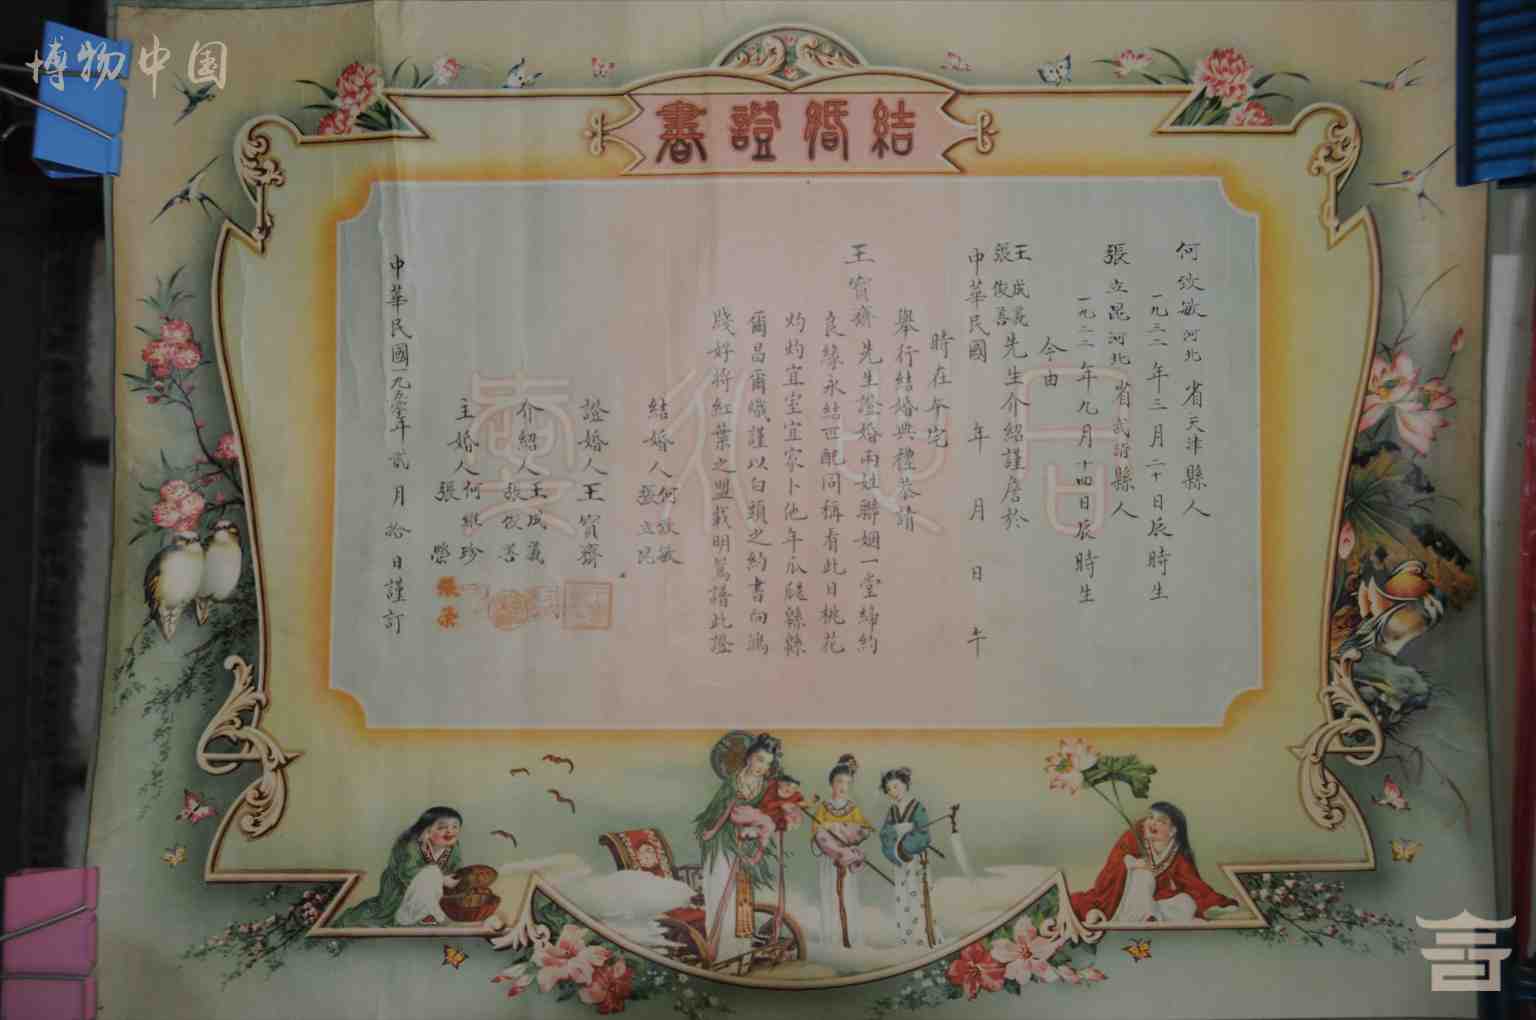 博物中国
結婚證書
何效敏河北省天津縣人
一九三二年三月二十日辰時生
張立昆河北省武清縣人
一九二二年九月十四日辰時生
今由
王成義
張俊善
先生介紹謹詹於
中華民國 年 月 日 午
時在本宅
舉行結婚典禮恭請
王寶齋先生證婚兩姓聯姻一堂締約
良緣永結匹配同稱看此日桃花
灼灼宜室宜家卜他年瓜瓞緜緜
爾昌爾熾謹以白頭之約書向鴻
牋好將紅葉之盟載明鴛譜此證
結婚人何效敏
張立昆
證婚人王寶齋
介紹人王成義
張俊善
主婚人何維珍
張 榮
中華民國一九五零年貳月拾日謹訂